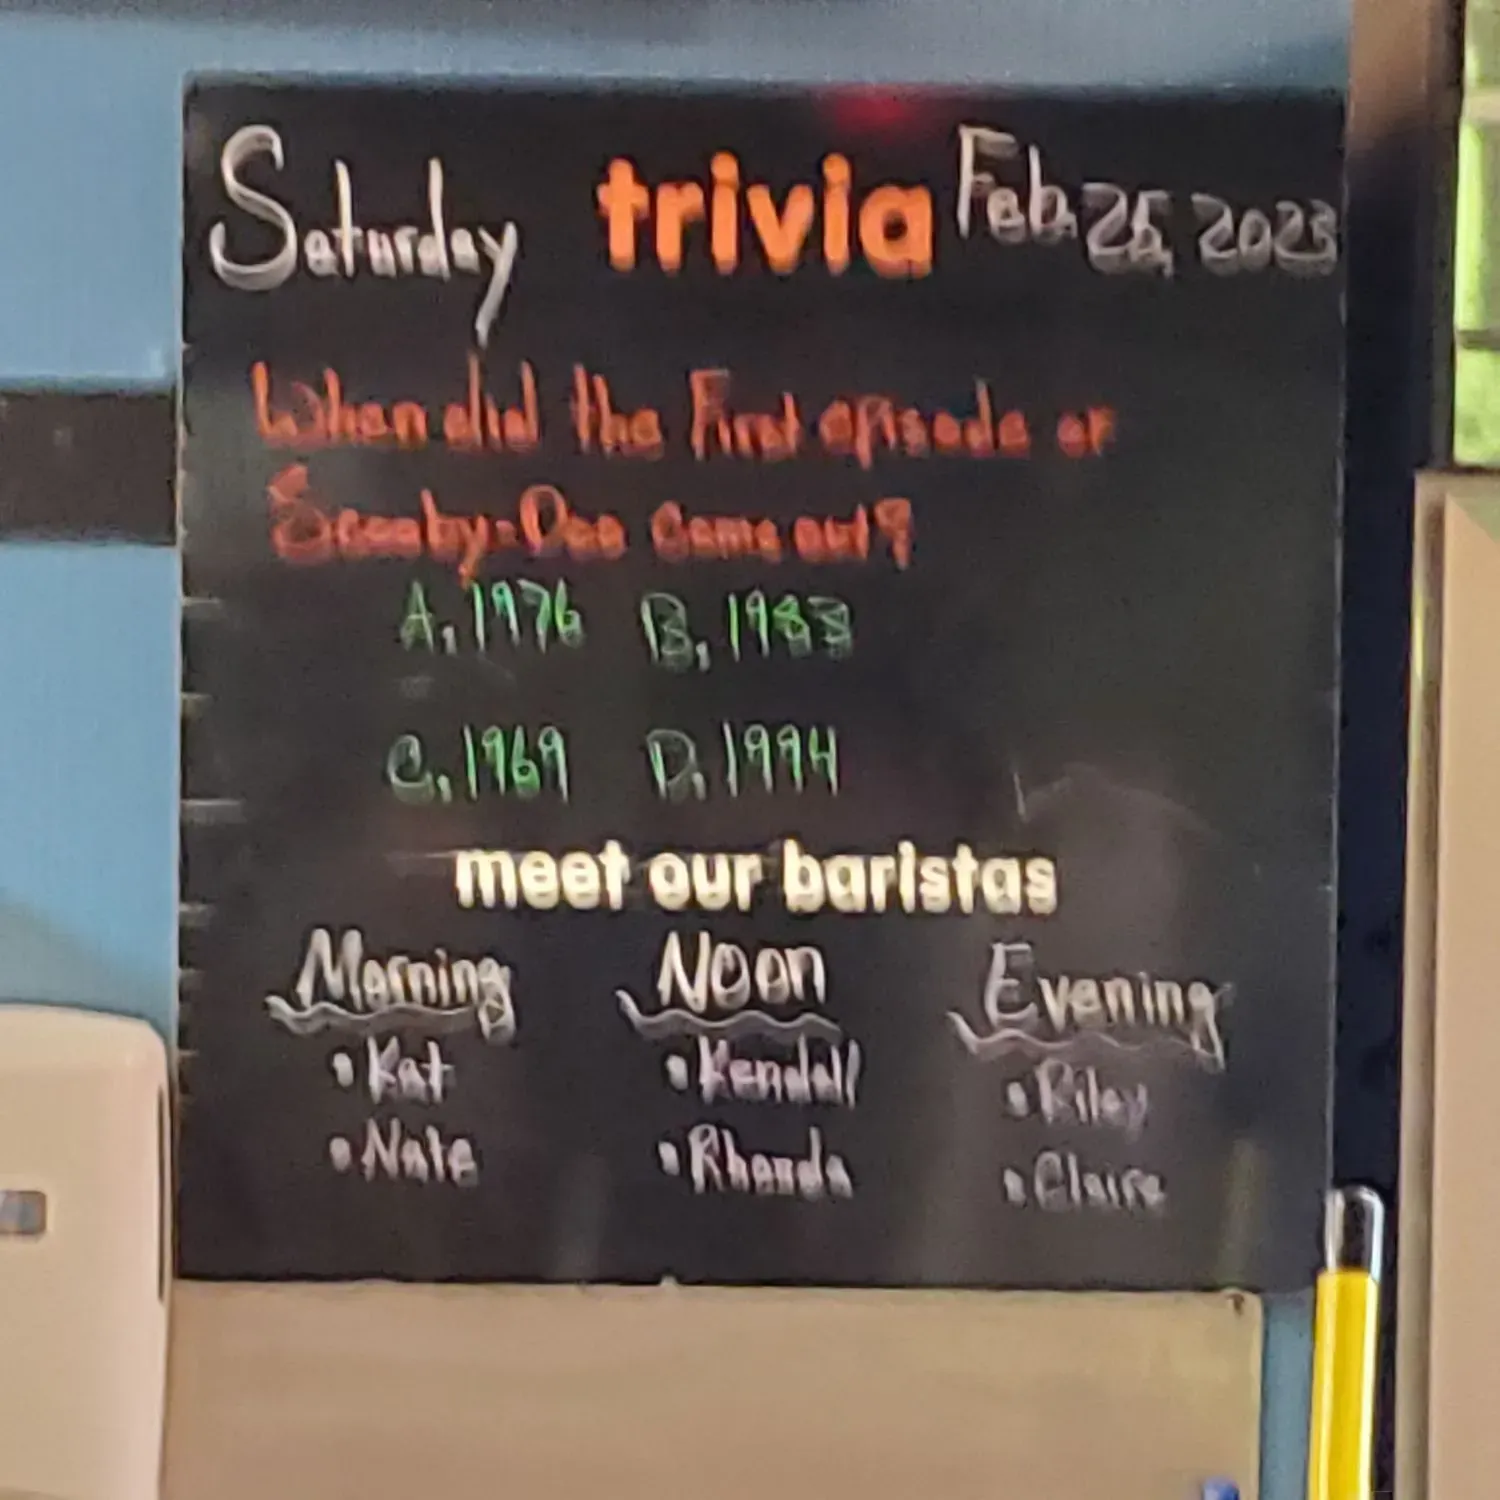 Saturday trivia Feb. 25, 2023
When did the First episode or
Scooby-Doo Come out?
A. 1976 B. 1983
C. 1969 D. 1994
meet our baristas
Morning Noon Evening
• Kat • Kendall • Riley
• Nate • Rhonda • Claire